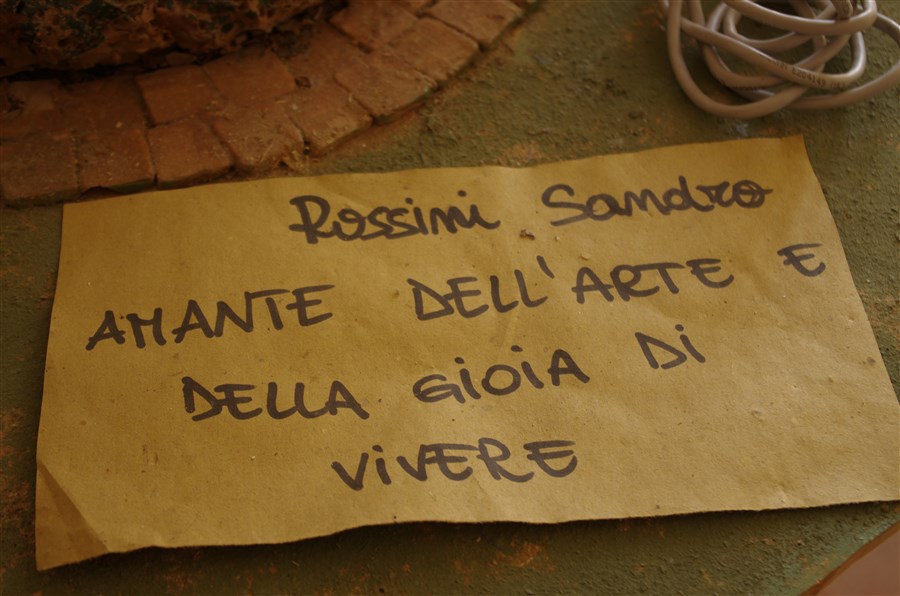 Rossini Sandro
AMANTE DELL'ARTE E
DELLA GIOIA DI
VIVERE